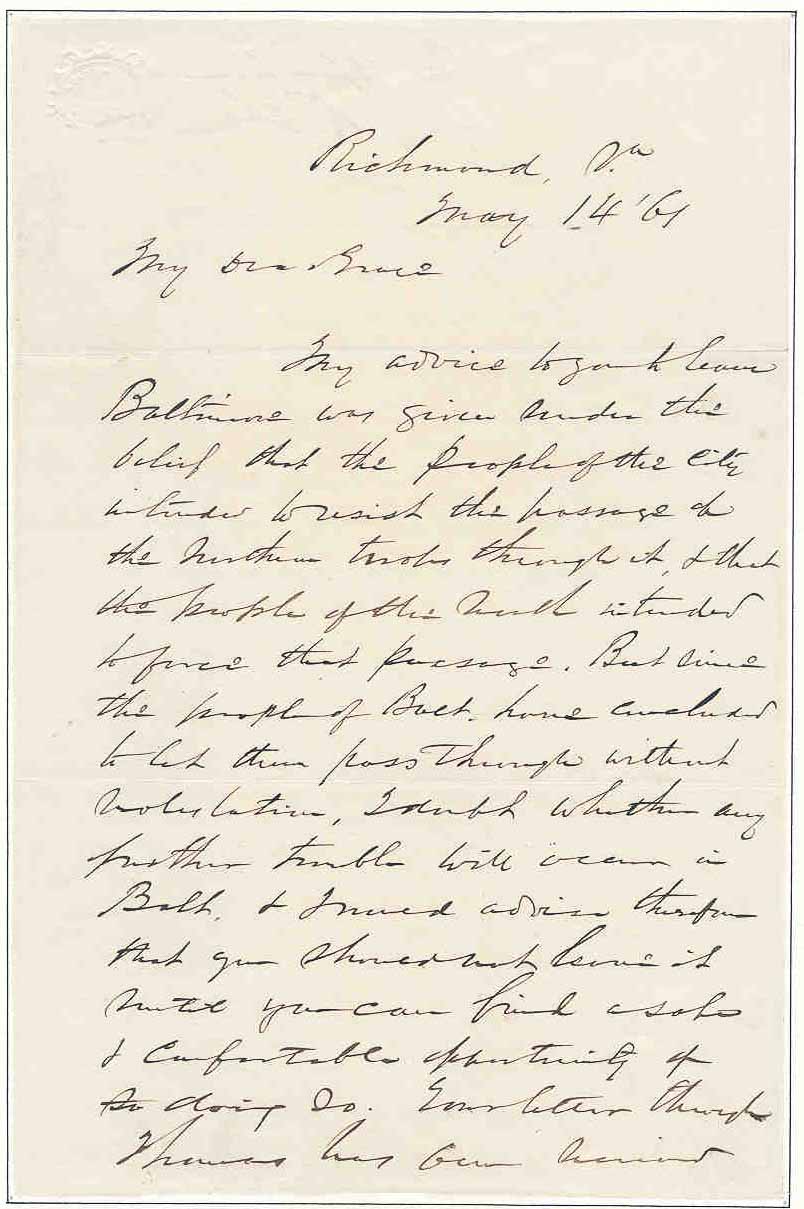 Richmond, Va
May 14 '61
My Dear Grace
My advice to you to leave
Baltimore was given under the
belief that the people of the City
intended to resist the passage of
the Northern troops through it, & that
the people of the North intended
to force that passage. But since
the people of Balt. have concluded
to let them pass through without
molestation, I doubt whether any
further trouble will occur in
Balt, & I would advise therefore
that you should not leave it
until you can find a safe
& comfortable opportunity of
so doing so. Your letter through
Thomas has been received